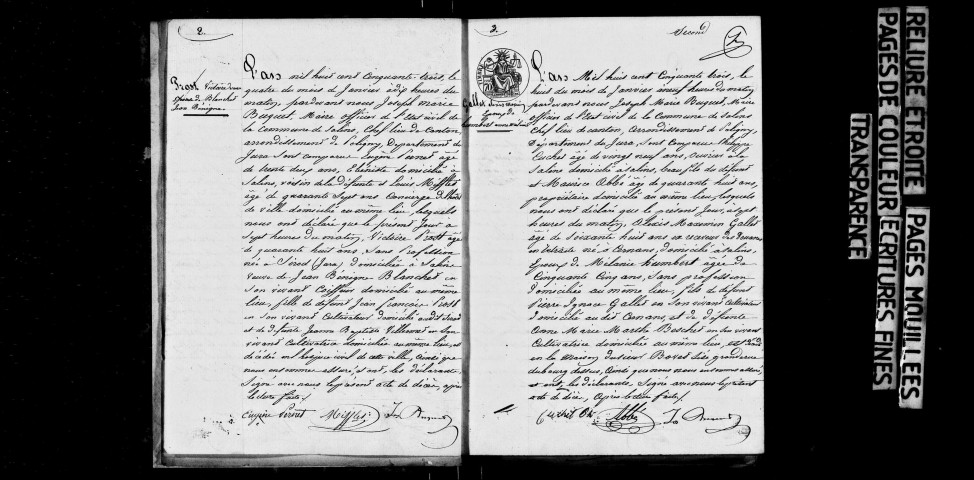 2.
Prost Victoire veuve
épouse de Blanchet
Jean Bénigne
L'an mil huit cent cinquante-trois, le
quatre du mois de Janvier à dix heures du
matin, pardevant nous Joseph Marie
Buguet, Maire officier de l'état civil de
la Commune de Salins, Chef lieu de Canton,
arrondissement de Poligny, Département du
Jura, sont comparus Eugène Pernet âgé
de trente deux ans, Ebéniste domicilié à
Salins, voisin de la défunte et Louis Mifflet
âgé de quarante sept ans Concierge de l'hôtel
de ville domicilié au même lieu, lesquels
nous ont déclaré que le présent jour à
sept heures du matin, Victoire Prost âgée
de quarante huit ans, sans profession
née à Sirod (Jura) domiciliée à Salins
veuve de Jean Bénigne Blanchet en
son vivant Coiffeur domicilié au même
lieu, fille de défunt Jean François Prost
en son vivant Cultivateur domicilié audit Sirod
et de défunte Jeanne Baptiste en son
vivant Cultivatrice domiciliée au même lieu, est
décédée en de cette ville, ainsi que
nous nous en sommes assuré, et ont, les déclarants
signé avec nous le présent acte de décès, après
lecture faite./.
Eugène Pernet Mifflet Jh Buguet
3.
Second
Gallet Alexis Maximin
Epoux de
Humbert Mélanie
L'an Mil huit cent Cinquante trois, le
huit du mois de Janvier à neuf heures du matin
pardevant nous Joseph Marie Buguet, Maire
officier de l'Etat civil de la Commune de Salins
Chef lieu de canton, arrondissement de Poligny,
Département du Jura, sont Comparus Philippe
Cuchet âgé de vingt neuf ans, ouvrier à la
Saline domicilié à Salins, beau fils du défunt
et Maurice Abbé âgé de quarante huit ans,
propriétaire domicilié au même lieu, lesquels
nous ont déclaré que le présent jour, à sept
heures du matin, Alexis Maximin Gallet
âgé de Soixante huit ans ex receveur des Douanes
en retraite né à Cernans, domicilié à Salins,
Epoux de Mélanie Humbert âgée de
Cinquante Cinq ans, sans profession
domiciliée au même lieu, fils de défunt
Pierre Ignace Gallet en son vivant Cultivateur
domicilié au dit Cernans, et de défunte
Anne Marie Marthe Beschet en son vivant
Cultivatrice domiciliée au même lieu, est décédé
en la Maison du sieur Bovet sise grande rue
du bourg dessus, ainsi que nous nous en sommes assuré,
et ont, les déclarants, signé avec nous le présent
acte de décès, après lecture faite./.
Cuchet Abbé Jh Buguet
RELIURE ETROITE PAGES MOUILLEES
PAGES DE COULEUR ECRITURES FINES
TRANSPARENCE